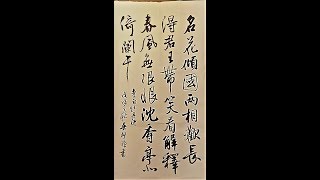 名花傾國兩相歡長
得君王帶笑看解釋
春風無限恨沈香亭北
倚闌干